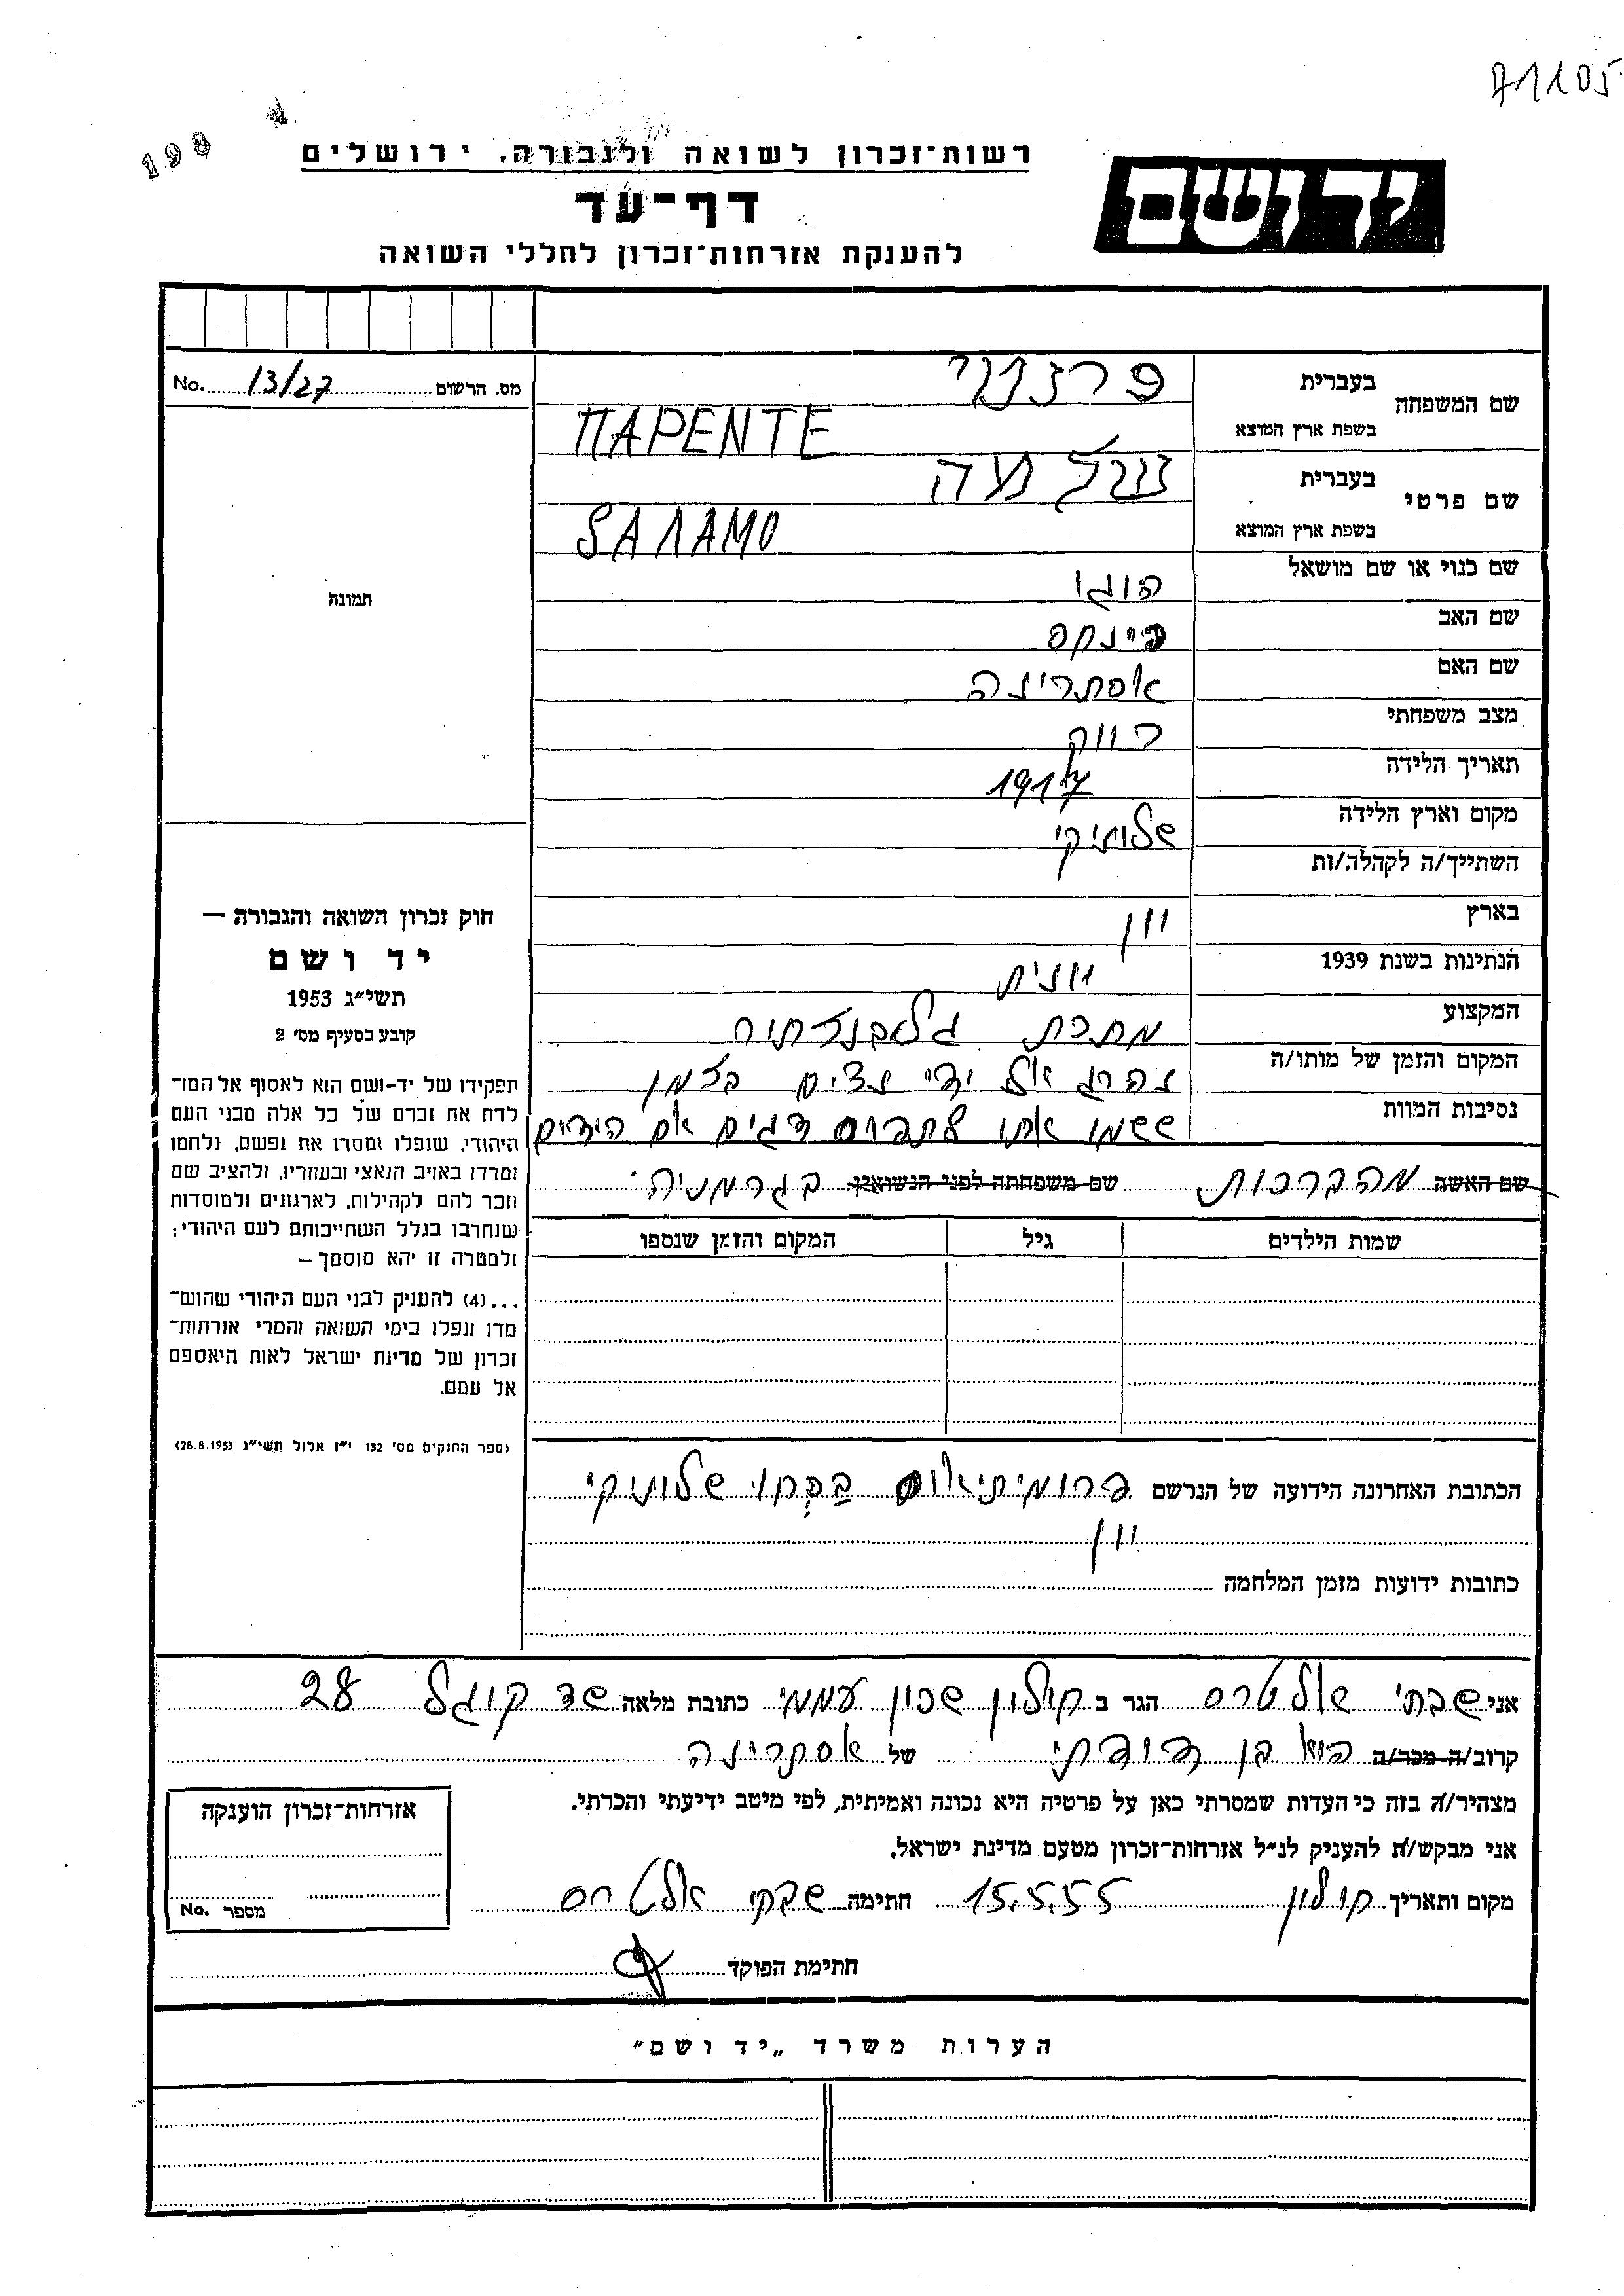 71105
198
רשות־זכרון לשואה ולגבורה, ירושלים
יד ושם
דף־עד
להענקת אזרחות־זכרון לחללי השואה
מס. הרשום 13/27 No.
שם המשפחה
בעברית
בשפת ארץ המוצא ΠΑΡΕΝΤΕ
שם פרטי
בעברית
בשפת ארץ המוצא SΑΛΑΜΟ
שם כנוי או שם מושאל
שם האב פינקס
שם האם אסתרינה
מצב משפחתי רווק
תאריך הלידה 1917
מקום וארץ הלידה שלוניקי
השתייך/ה לקהלה/ות
בארץ יון
הנתינות בשנת 1939 יונית
המקצוע מתכת
המקום והזמן של מותו/ה נהרג אל ידי נצים בזמן
נסיבות המוות ששמו אותו לתפוס דגים אם הידים
שם האשה מהברכות שם משפחתה לפני הנשואין בגרמניה.
שמות הילדים גיל המקום והזמן שנספו
תמונה
חוק זכרון השואה והגבורה —
יד ושם
תשי״ג 1953
קובע בסעיף מס׳ 2
תפקידו של יד-ושם הוא לאסוף אל המו־
לדת את זכרם של כל אלה מבני העם
היהודי, שנפלו ומסרו את נפשם, נלחמו
ומרדו באויב הנאצי ובעוזריו, ולהציב שם
וזכר להם לקהילות, לארגונים ולמוסדות
שנחרבו בגלל השתייכותם לעם היהודי;
ולמטרה זו יהא מוסמך —
...(4) להעניק לבני העם היהודי שהוש־
מדו ונפלו בימי השואה והמרי אזרחות־
זכרון של מדינת ישראל לאות היאספם
אל עמם.
(ספר החוקים מס׳ 132 י״ז אלול תשי״ג 28.8.1953)
הכתובת האחרונה הידועה של הנרשם שלוניקי
יון
כתובות ידועות מזמן המלחמה
אני שבתי אלטרס הגר ב חולון שכון עממי כתובת מלאה שד קוגל 28
קרוב/ה מכר/ה הוא בן דודתי של אסתרינה
מצהיר/ה בזה כי העדות שמסרתי כאן על פרטיה היא נכונה ואמיתית, לפי מיטב ידיעתי והכרתי.
אני מבקש/ת להעניק לנ״ל אזרחות־זכרון מטעם מדינת ישראל.
מקום ותאריך חולון 15.5.55 חתימה שבתי אלטרס
חתימת הפוקד
אזרחות־זכרון הוענקה
מספר No.
הערות משרד „יד ושם״